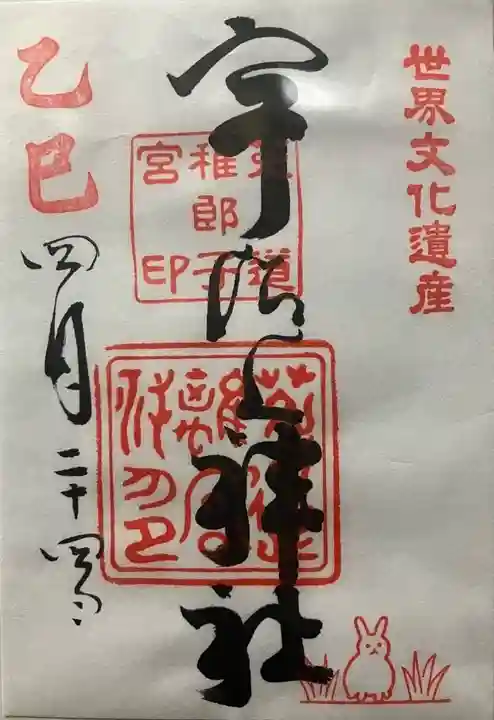 世界文化遺産
宇治上神社
菟道
稚郎子
宮印
乙巳
四月二十四日